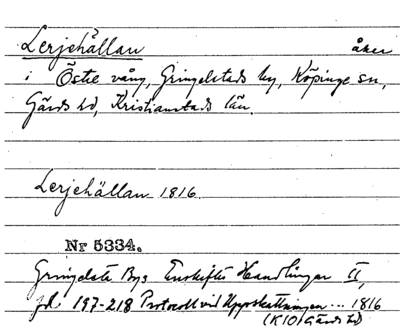 Lerjehällan åker
i Östre vång, Gringelstads by, Köpinge sn,
Gärds hd, Kristianstads län.
Lerjehällan 1816.
Nr 5334.
Gringelsta Bys Enskiftes Handlingar II,
fol. 197-218 Protocoll vid Uppskattningen ... 1816
(K10 Gärds hd)